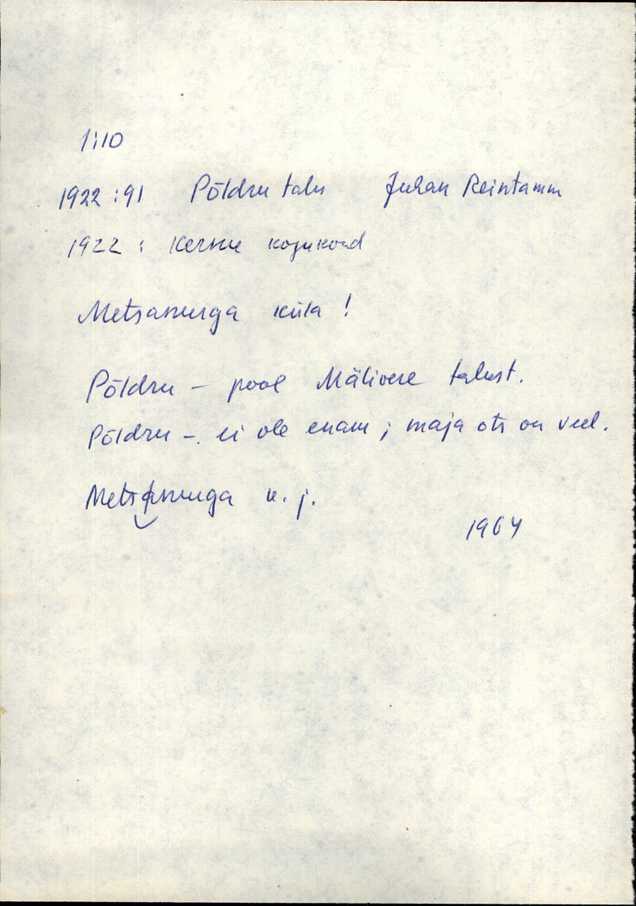 1:10
1922:91 Põldru talu Juhan Reintamm
1922: Kernu kogukond
Metsanurga küla!
Põldru - pool Mälivere talust.
Põldru - ei ole enam; maja ots on veel.
Metsanurga u. j.
1964